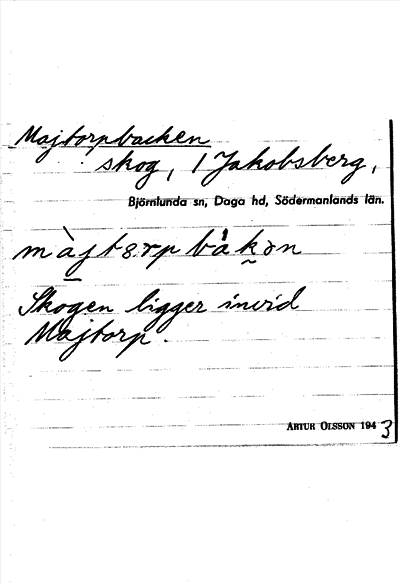 Majtorpbacken
skog, 1 Jakobsberg,
Björnlunda sn, Daga hd, Södermanlands län.
Skogen ligger invid
Majtorp.
ARTUR OLSSON 1943